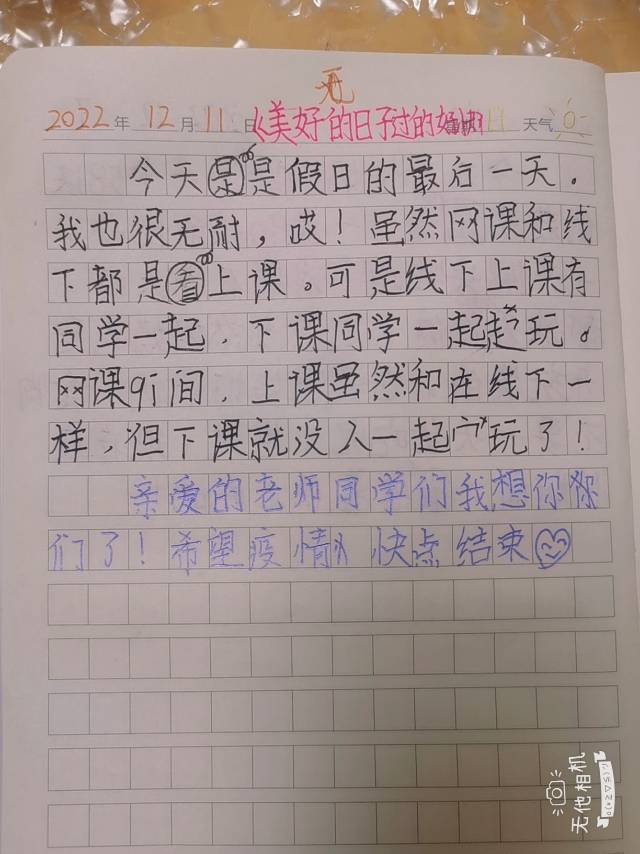 无
2022年 12月 11日 《美好的日子过的好快》 天气
今天是是假日的最后一天。
我也很无耐，哎！虽然网课和线
下都是看上课。可是线下上课有
同学一起，下课同学一起起玩。
网课qi间，上课虽然和在线下一
样，但下课就没人一起玩了！
亲爱的老师同学们我想你你
们了！希望疫情快点结束
无他相机